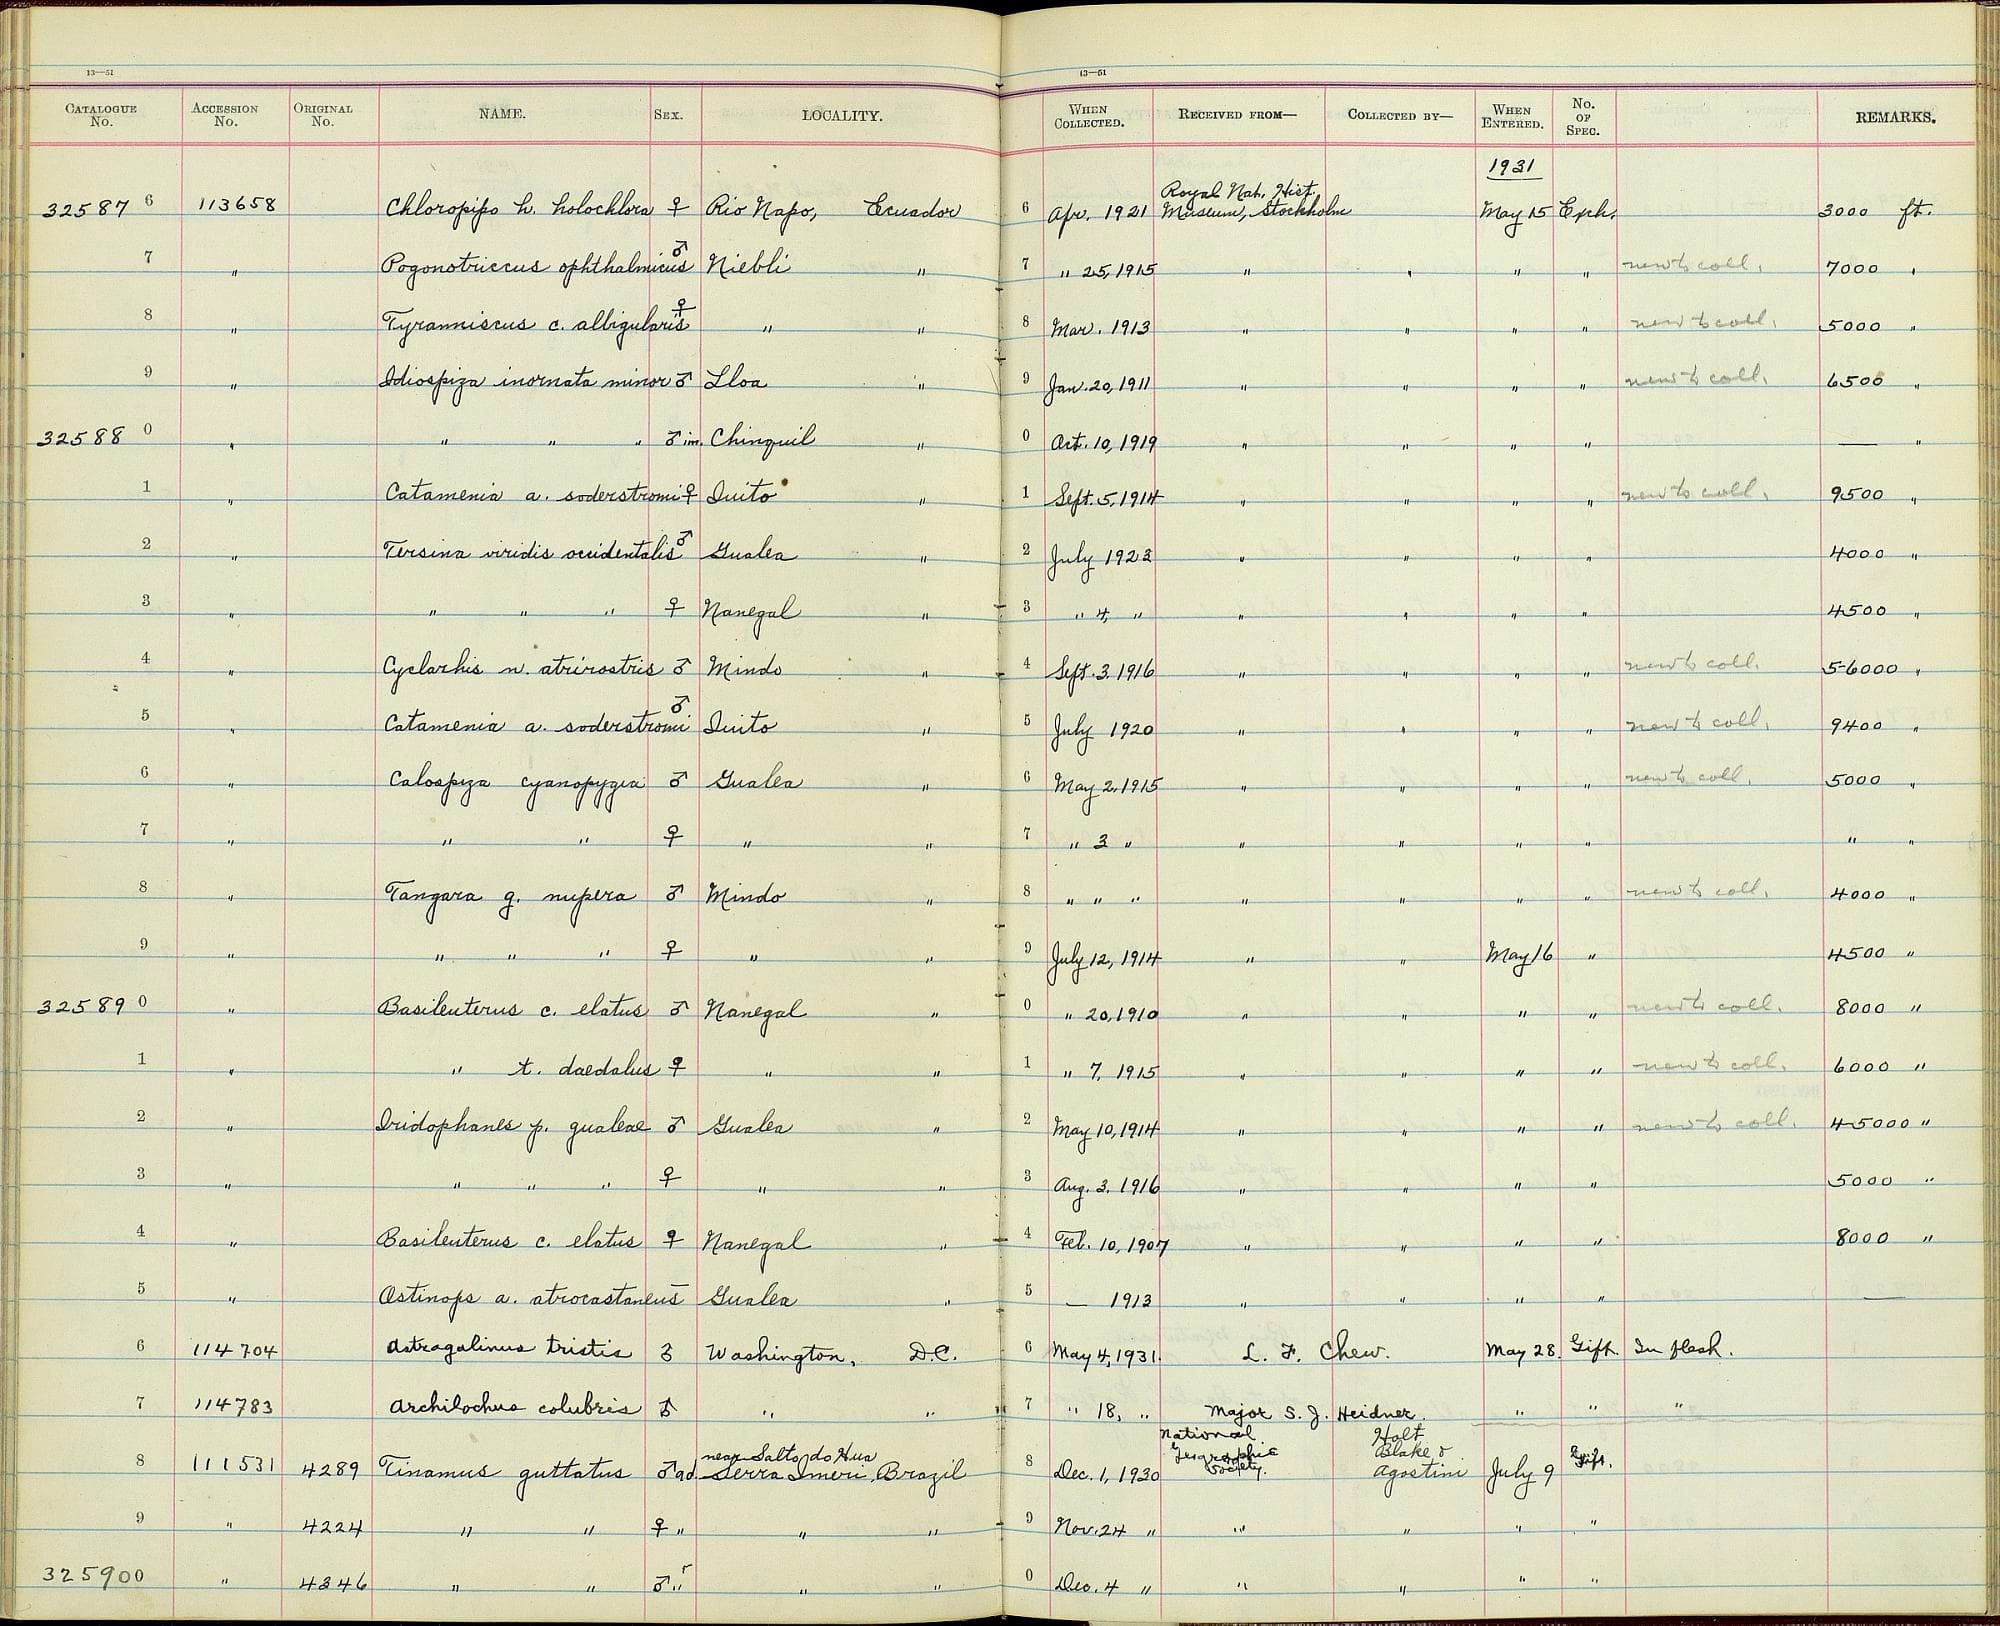 13—51 13—51
CATALOGUE No. ACCESSION No. ORIGINAL No. NAME. SEX. LOCALITY. WHEN COLLECTED. RECEIVED FROM— COLLECTED BY— WHEN ENTERED. No. OF SPEC. REMARKS.
1931
32587 6 113658 Chloropipo h. holochlora ♀ Rio Napo, Ecuador 6 Apr. 1921 Royal Nat. Hist. Museum, Stockholm May 15 Exch. 3000 ft.
7 " Pogonotriccus ophthalmicus ♂ Niebli " 7 " 25, 1915 " " " " new to coll. 7000 "
8 " Tyranniscus c. albigularis ♀ " " 8 Mar. 1913 " " " " new to coll. 5000 "
9 " Idiospiza inornata minor ♂ Lloa " 9 Jan. 20, 1911 " " " " new to coll. 6500 "
32588 0 " " " " ♂ im. Chinquil " 0 Oct. 10, 1919 " " " " — "
1 " Catamenia a. soderstromi ♀ Quito " 1 Sept. 5, 1914 " " " " new to coll. 9500 "
2 " Tersina viridis occidentalis ♂ Gualea " 2 July 1923 " " " " 4000 "
3 " " " " ♀ Nanegal " 3 " 4, " " " " " 4500 "
4 " Cyclarhis n. atrirostris ♂ Mindo " 4 Sept. 3. 1916 " " " " new to coll. 5-6000 "
5 " Catamenia a. soderstromi ♂ Quito " 5 July 1920 " " " " new to coll. 9400 "
6 " Calospiza cyanopygia ♂ Gualea " 6 May 2, 1915 " " " " new to coll. 5000 "
7 " " " ♀ " " 7 " 3 " " " " " " "
8 " Tangara g. nupera ♂ Mindo " 8 " " " " " " " new to coll. 4000 "
9 " " " " ♀ " " 9 July 12, 1914 " " May 16 " 4500 "
32589 0 " Basileuterus c. elatus ♂ Nanegal " 0 " 20, 1910 " " " " new to coll. 8000 "
1 " " t. daedalus ♀ " " 1 " 7, 1915 " " " " new to coll. 6000 "
2 " Iridophanes p. gualeae ♂ Gualea " 2 May 10, 1914 " " " " new to coll. 4-5000 "
3 " " " " ♀ " " 3 Aug. 3. 1916 " " " " 5000 "
4 " Basileuterus c. elatus ♀ Nanegal " 4 Feb. 10, 1907 " " " " 8000 "
5 " Ostinops a. atrocastaneus — Gualea " 5 — 1913 " " " " —
6 114704 Astragalinus tristis ♂ Washington, D.C. 6 May 4, 1931. L. F. Chew. May 28. Gift. In flesh.
7 114783 Archilochus colubris ♂ " " 7 " 18, " Major S. J. Heidner. " " "
8 111531 4289 Tinamus guttatus ♂ ad. near Salto do Hua Serra Imeri, Brazil 8 Dec. 1, 1930 National Geographic Society. Holt Blake & Agostini July 9 Gift.
9 " 4224 " " ♀ " " " 9 Nov. 24 " " " " "
325900 " 4346 " " ♂ " " " 0 Dec. 4 " " " " "